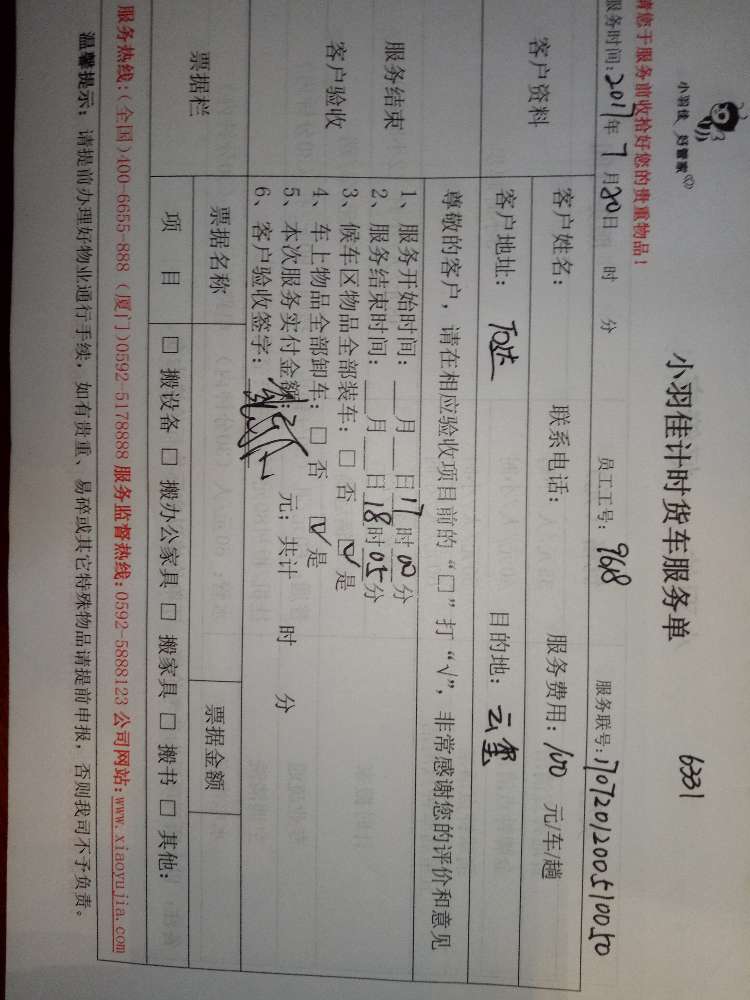 小羽佳 好管家
小羽佳计时货车服务单
6331
请您于服务前收拾好您的贵重物品！
服务时间：2017年7月20日 时 分 员工工号：968 服务联号：1707201200510050
客户资料
客户姓名： 联系电话： 服务费用：100 元/车/趟
客户地址： 目的地：
尊敬的客户，请在相应验收项目前的“□”打“√”，非常感谢您的评价和意见
服务结束
客户验收
1、服务开始时间：__月__日17时00分
2、服务结束时间：__月__日18时05分
3、候车区物品全部装车：□ 否 ☑ 是
4、车上物品全部卸车：□ 否 ☑ 是
5、本次服务实付金额： 元；共计 时 分
6、客户验收签字：
票据栏
票据名称 票据金额
项 目 □ 搬设备 □ 搬办公家具 □ 搬家具 □ 搬书 □ 其他：
服务热线：（全国）400-6655-888（厦门）0592-5178888 服务监督热线：0592-5888123 公司网站：www.xiaoyujia.com
温馨提示：请提前办理好物业通行手续，如有贵重、易碎或其它特殊物品请提前申报，否则我司不予负责。